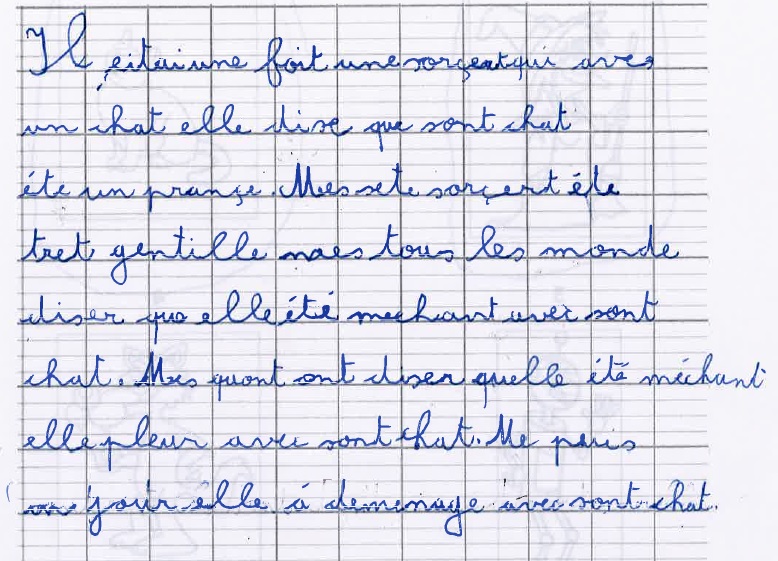 Il eitai une foit une sorçeat qui aves
un chat elle dise que sont chat
éte un prançe. Mes sete sorçert éte
tret gentille maes tous les monde
diser que elle été mechant avec sont
chat. Mes quont ont diser quelle été méchant
elle pleur avec sont chat. Me puis
un jour elle à demenage avec sont chat.